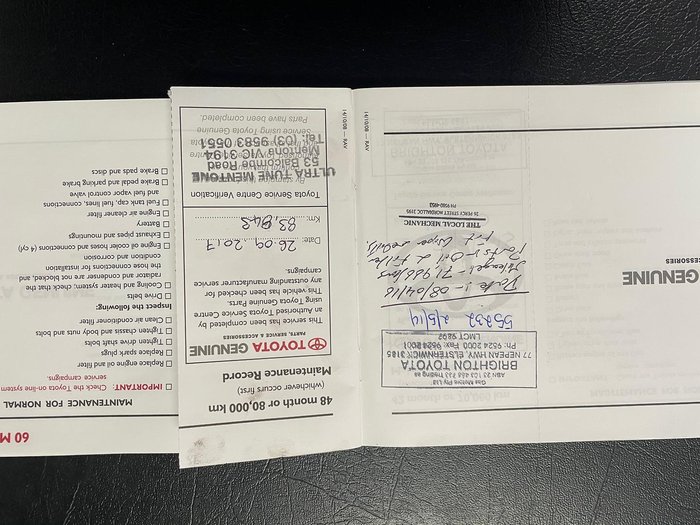 60 M
MAINTENANCE FOR NORMAL
IMPORTANT: Check the Toyota on-line system
service campaigns.
Replace engine oil and filter
Replace spark plugs
Tighten drive shaft bolts
Tighten chassis and body nuts and bolts
Clean air conditioner filter
Inspect the following:
Drive belts
Cooling and heater system; check that the
radiator and condenser are not blocked, and
the hose connections for installation
condition and corrosion
Engine oil cooler hoses and connections (4 cyl)
Exhaust pipes and mountings
Battery
Engine air cleaner filter
Fuel tank cap, fuel lines, connections
and fuel vapor control valve
Brake pedal and parking brake
Brake pads and discs
48 month or 80,000 km
(whichever occurs first)
Maintenance Record
TOYOTA GENUINE
PARTS, SERVICE & ACCESSORIES
This service has been completed by
an Authorised Toyota Service Centre
using Toyota Genuine Parts.
This vehicle has been checked for
any outstanding manufacturing service
campaigns.
Date: 26.09.2017
Km: 83,843
Toyota Service Centre Verification
ULTRA TUNE MENTONE
53 Balcombe Road
Mentone VIC 3194
Tel: (03) 9583 0551
Service using Toyota Genuine
Parts have been completed.
14/10/08 — RAV
BRIGHTON TOYOTA
77 NEPEAN HWY. ELSTERNWICK 3185
LMCT 9892
55232 2/5/14
Date :- 08/04/16
71926 kms
Parts :- Oil & Filter
Fit wiper
THE LOCAL MECHANIC
PH 9580 4952
14/10/08 — RAV
GENUINE
CESSORIES